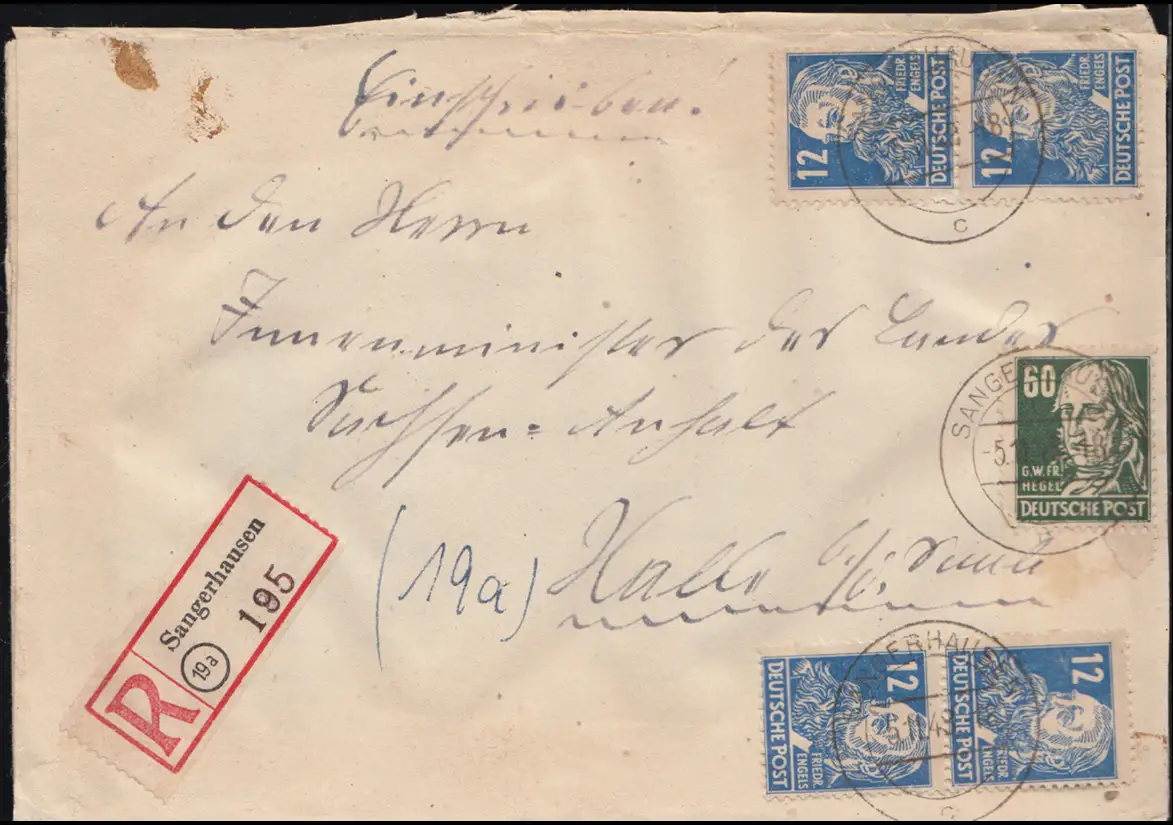 Einschreiben!
An den Herrn
Innenminister des Landes
Sachsen-Anhalt
(19a) Halle b/s. Saale
12
FRIEDR.
ENGELS
DEUTSCHE POST
12
FRIEDR.
ENGELS
DEUTSCHE POST
C
60
G.W.FR.
HEGEL
DEUTSCHE POST
SANGERHAUSEN
R
Sangerhausen
19a
195
12
FRIEDR.
ENGELS
DEUTSCHE POST
12
FRIEDR.
ENGELS
DEUTSCHE POST
SANGERHAUSEN
C